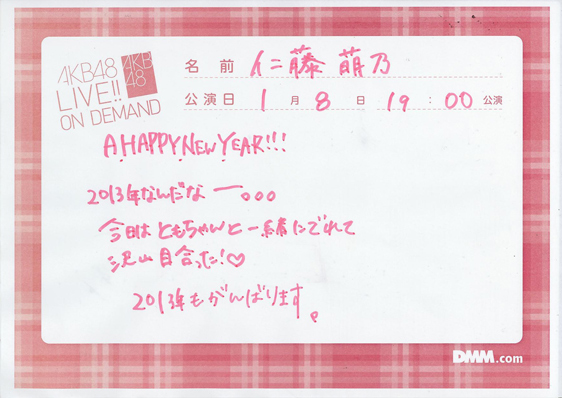 AKB48
LIVE!!
ON DEMAND
AKB
48
名前 仁藤萌乃
公演日 1月8日 19:00 公演
A HAPPY NEW YEAR!!!
2013年なんだなー。。。
今日はともちゃんと一緒にでれて
沢山目合った!♡
2013年もがんばります。
DMM.com